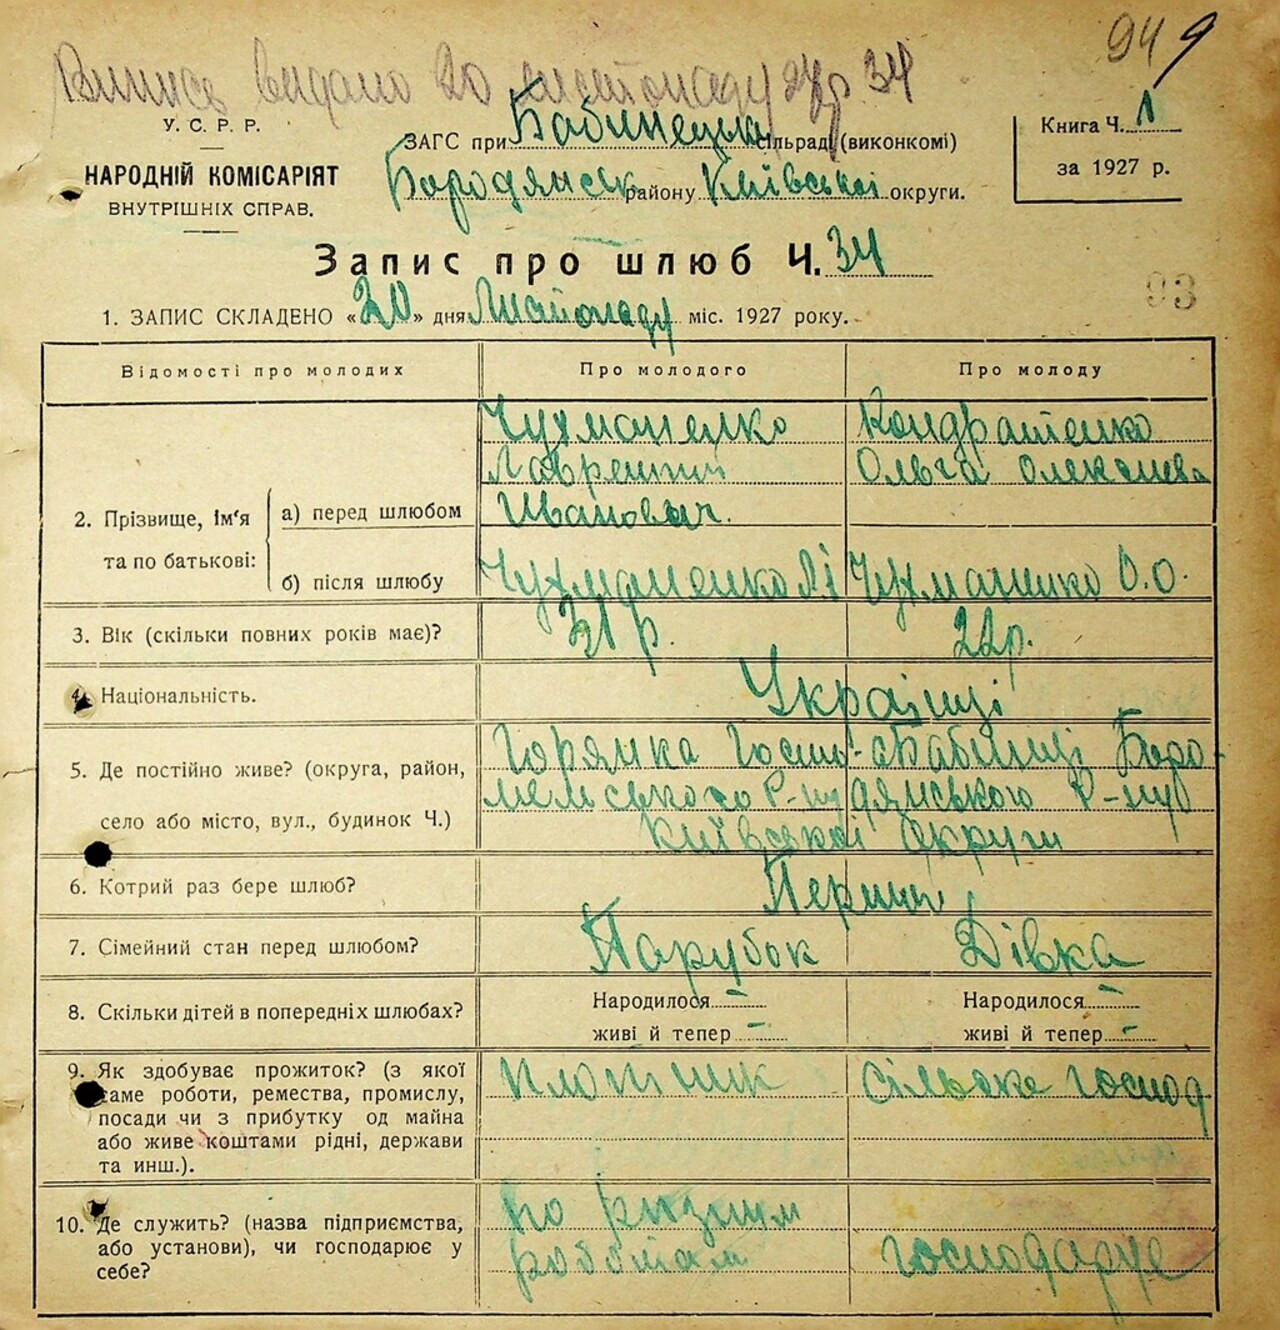 94 9
Випись видано 20 листопаду 27р 34
У. С. Р. Р.
НАРОДНІЙ КОМІСАРІЯТ
ВНУТРІШНІХ СПРАВ.
ЗАГС при Бабинецька сільраді (виконкомі)
Бородянськ району Київської округи.
Книга Ч. 1
за 1927 р.
Запис про шлюб Ч. 34
93
1. ЗАПИС СКЛАДЕНО «20» дня Листопаду міс. 1927 року.
Відомості про молодих
Про молодого
Про молоду
2. Прізвище, ім'я
та по батькові:
а) перед шлюбом
Чухманенко
Лаврентий
Иванович.
Кондратенко
Ольга Олексиева
б) після шлюбу
Чухманенко Л І
Чухманенко О.О.
3. Вік (скільки повних років має)?
31 р.
22р.
4. Національність.
Українці
5. Де постійно живе? (округа, район,
село або місто, вул., будинок Ч.)
Р-ну
Бабинці Боро-
дянського Р-ну
Київської Округи
6. Котрий раз бере шлюб?
Перший
7. Сімейний стан перед шлюбом?
Парубок
Дівка
8. Скільки дітей в попередніх шлюбах?
Народилося –
живі й тепер –
Народилося –
живі й тепер –
9. Як здобуває прожиток? (з якої
саме роботи, ремества, промислу,
посади чи з прибутку од майна
або живе коштами рідні, держави
та инш.).
Плотник
Сільське господ
10. Де служить? (назва підприємства,
або установи), чи господарює у
себе?
По ризним
роботам
господарує